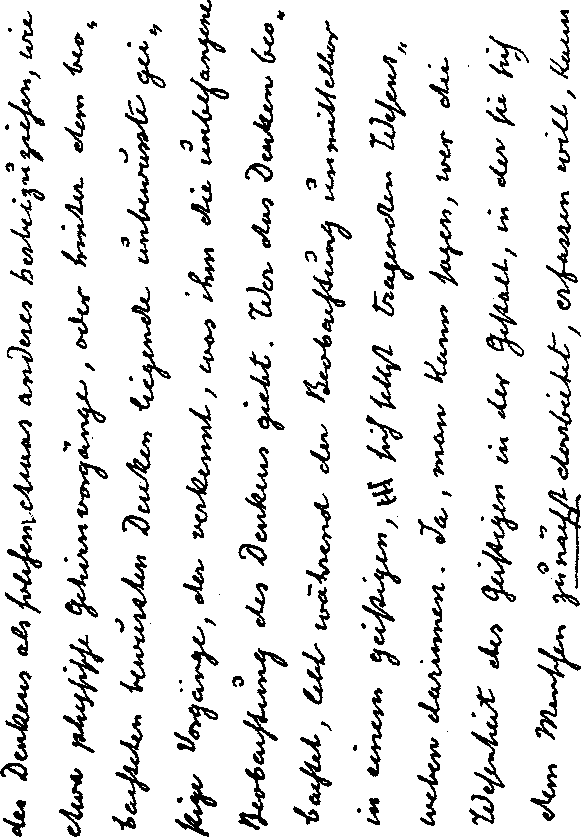 des Denkens als solchem, etwas anderes herbeizuziehen, wie
etwa physische Gehirnvorgänge, oder hinter dem beo„
bachteten bewussten Denken liegende unbewusste gei„
stige Vorgänge, der verkennt, was ihm die unbefangene
Beobachtung des Denkens giebt. Wer das Denken beo„
bachtet, lebt während der Beobachtung unmittelbar
in einem geistigen, sich selbst tragenden Wesens„
weben darinnen. Ja, man kann sagen, wer die
Wesenheit des Geistigen in der Gestalt, in der sie sich
dem Menschen zunächst darbietet, erfassen will, kann